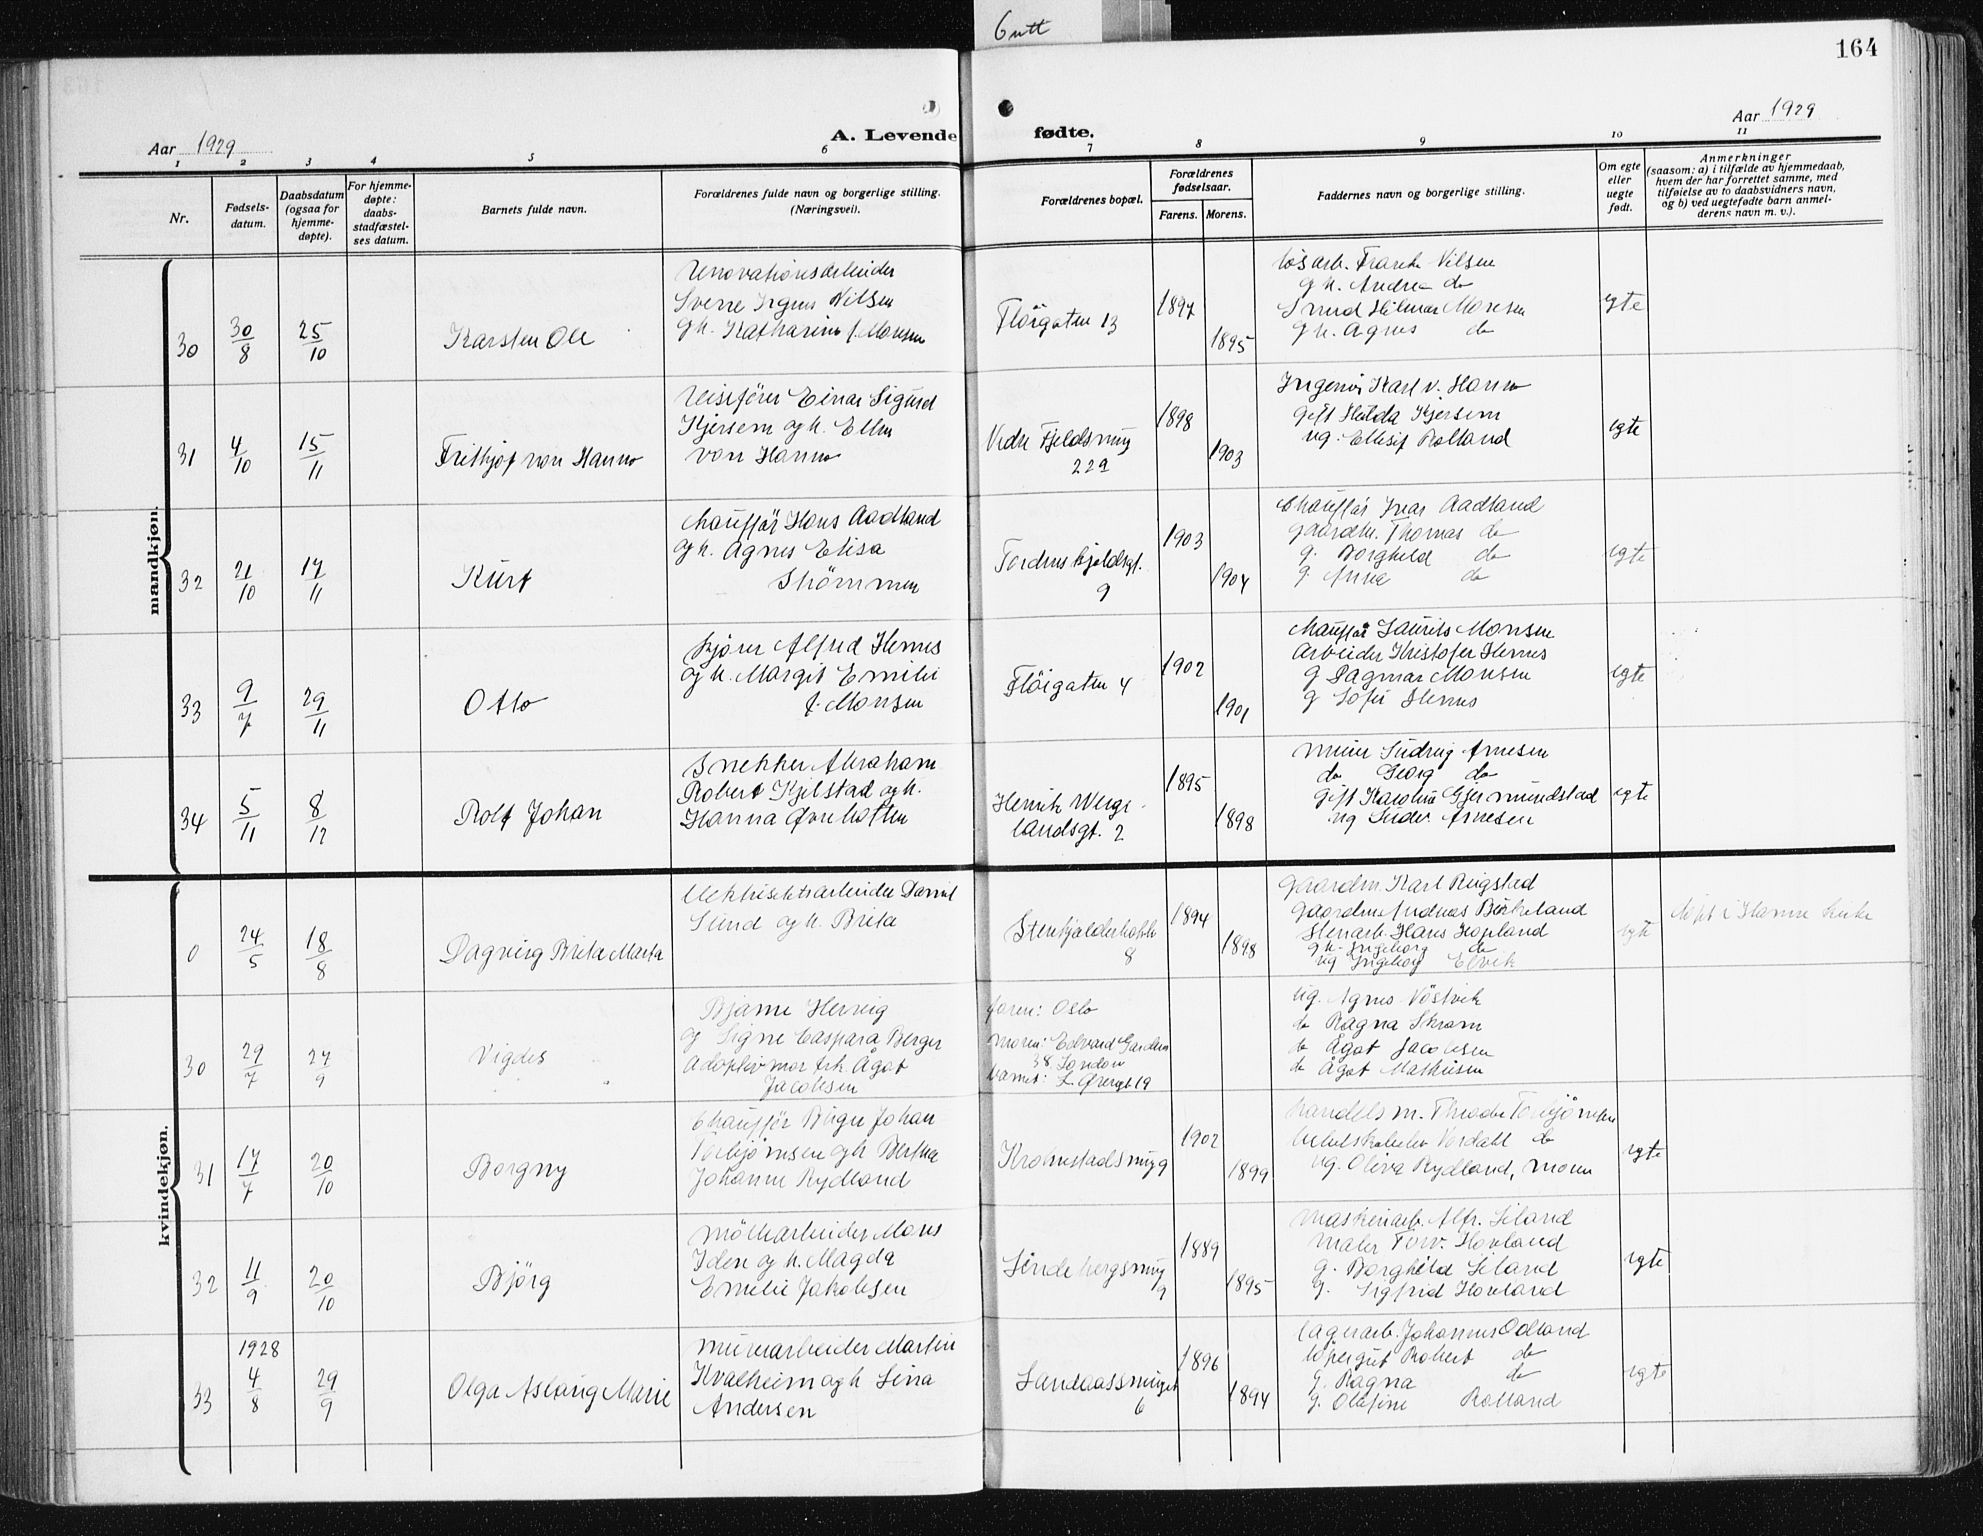 6 utt
164
Aar 1929
A. Levende fødte.
Aar 1929
1 2 3 4 5 6 7 8 9 10 11
Nr.
Fødsels-
datum.
Daabsdatum
(ogsaa for
hjemme-
døpte).
For hjemme-
døpte:
daabs-
stadfæstel-
ses datum.
Barnets fulde navn.
Forældrenes fulde navn og borgerlige stilling.
(Næringsvei).
Forældrenes bopæl.
Forældrenes
fødselsaar.
Farens. Morens.
Faddernes navn og borgerlige stilling.
Om egte
eller
uegte
født.
Anmerkninger
(saasom: a) i tilfælde av hjemmedaab,
hvem der har forrettet samme, med
tilføielse av to daabsvidners navn,
og b) ved uegtefødte barn anmel-
derens navn m. v.).
mandkjøn.
30
30/8
25/10
Karsten Ole
Renovationsarbeider
Sverre Ingus Nilsen
og h. Katharina f. Monsen
Fløigaten 13
1897
1895
løsarb. Frank Nilsen
g h. Andrea do
Smed Hilmar Monsen
g h. Agnes do
egte
31
4/10
15/11
Frithjof von Hanno
Reisefører Einar Sigurd
Kjersem og h. Ellen
von Hanno
Nedre Fjeldsmug
22a
1898
1903
Ingeniør Karl v. Hanno
gift Hilda Kjersem
ug. Ellisif Rolland
egte
32
21/10
17/11
Kurt
Chauffør Hans Aadland
og h. Agnes Elisa
Strømmen
Tordenskjoldsgt.
9
1903
1904
Chauffør Ivar Aadland
gaardbr. Thomas do
g. Borghild do
g. Anna do
egte
33
9/7
29/11
Otto
Kjører Alfred Hernes
og h. Margit Emilie
f. Monsen
Fløigaten 4
1902
1901
Chauffør Laurits Monsen
Arbeider Kristofer Hernes
g Dagmar Monsen
g Sofie Hernes
egte
34
5/11
8/12
Rolf Johan
Snekker Abraham
Robert Kjelstad og h.
Hanna Øvrebotten
Henrik Werge-
landsgt. 2
1895
1898
Murer Ludvig Arnesen
do Georg do
Gift Karoline Gjermundstad
ug Arnesen
egte
kvindekjøn.
0
24/5
18/8
Dagveig Brita Marta
Elektricitetsarbeider Daniel
Sund og h. Brita
Stenkjelderbakk
8
1894
1898
Gaardm. Karl Reigstad
Gaardm Andreas Birkeland
Stenarb. Hans Hopland
g h. Ingeborg do
ug Ingeborg Elvik
egte
døpt i Hamre Kirke
30
29/7
27/9
Vigdes
Bjarne Herveig
og Signe Caspara Berger
Adoptivmor frk. Ågot
Jacobsen
faren: Oslo
moren: Edvard Gardens
38 London
barnet: L. Øregt 19
ug. Agnes Nöstvik
do Ragna Skram
do Ågot Jacobsen
do Ågot Mathiesen
31
17/7
20/10
Borgny
Chauffør Birger Johan
Torbjørnsen og h Bertha
Johanne Rydland
Krohnstadsmug 9
1902
1899
handelsm. Theodor Torbjørnsen
Nordahl do
ug. Oliva Rydland, moren
egte
32
11/9
20/10
Bjørg
Møllearbeider Mons
Iden og h. Magda
Emilie Jakobsen
Lindebergsmug
9
1889
1895
Maskinarb. Alfr. Liland
Maler Torv. Hovland
g. Borghild Liland
g. Sigfrid Hovland
egte
33
1928
4/8
29/9
Olga Aslaug Marie
Murerarbeider Martin
Kvalheim og h Lina
Andersen
Landaassmuget
6
1896
1894
Lagerarb. Johannes Odland
løpergut Robert do
g. Ragna do
g. Olafine Rolland
egte